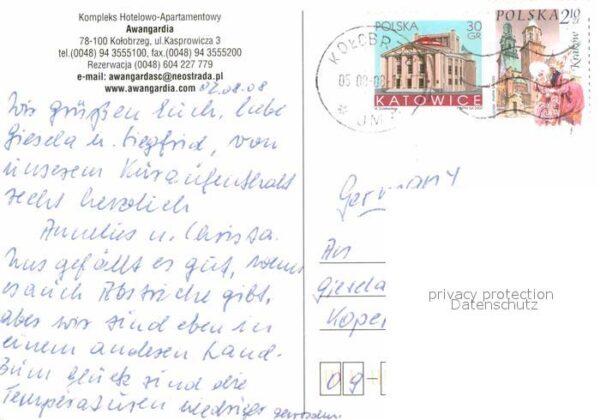 Kompleks Hotelowo-Apartamentowy
Awangardia
78-100 Kołobrzeg, ul.Kasprowicza 3
tel.(0048) 94 3555100, fax.(0048) 94 3555200
Rezerwacja (0048) 604 227 779
e-mail: awangardasc@neostrada.pl
www.awangardia.com
02.08.08
Wir grüßen Euch, liebe
Giesela u. Siegfrid, von
unserem Kuraufenthalt
recht herzlich
Annelies u. Christa.
Uns gefällt es gut, wenn
es auch Abstriche gibt,
aber wir sind eben in
einem anderen Land.
Zum Glück sind die
Temperaturen niedriger geworden
POLSKA 30 GR
KATOWICE
POLSKA 2,10 ZŁ
Kraków
KOŁOBR
05-08-08
Germany
An
Giesela
Koper
privacy protection
Datenschutz
09-